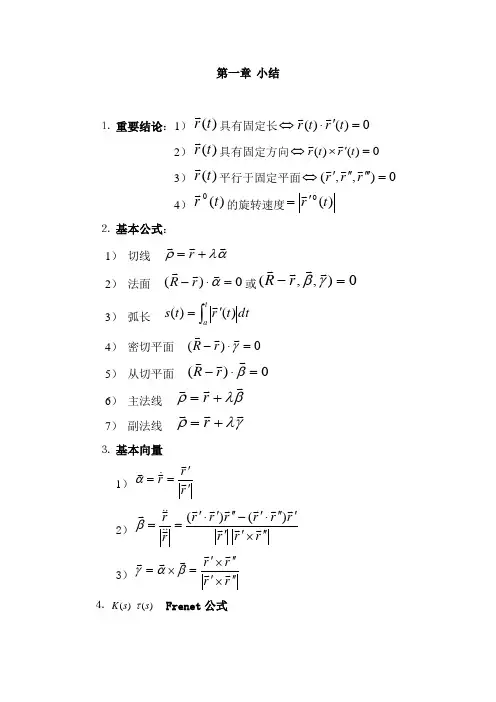 第一章 小结
1. 重要结论：1）r⃗(t)具有固定长⇔r⃗(t)·r⃗′(t)=0
2）r⃗(t)具有固定方向⇔r⃗(t)×r⃗′(t)=0
3）r⃗(t)平行于固定平面⇔(r⃗′,r⃗″,r⃗‴)=0
4）r⃗⁰(t)的旋转速度=|r⃗′⁰(t)|
2. 基本公式：
1） 切线 ρ⃗=r⃗+λα⃗
2） 法面 (R⃗−r⃗)·α⃗=0或(R⃗−r⃗,β⃗,γ⃗)=0
3） 弧长 s(t)=∫ₐᵗ|r⃗′(t)|dt
4） 密切平面 (R⃗−r⃗)·γ⃗=0
5） 从切平面 (R⃗−r⃗)·β⃗=0
6） 主法线 ρ⃗=r⃗+λβ⃗
7） 副法线 ρ⃗=r⃗+λγ⃗
3. 基本向量
1）α⃗=ṙ⃗=r⃗′/|r⃗′|
2）β⃗=r̈⃗/|r̈⃗|=((r⃗′·r⃗′)r⃗″−(r⃗′·r⃗″)r⃗′)/(|r⃗′||r⃗′×r⃗″|)
3）γ⃗=α⃗×β⃗=(r⃗′×r⃗″)/|r⃗′×r⃗″|
4. K(s) τ(s) Frenet公式